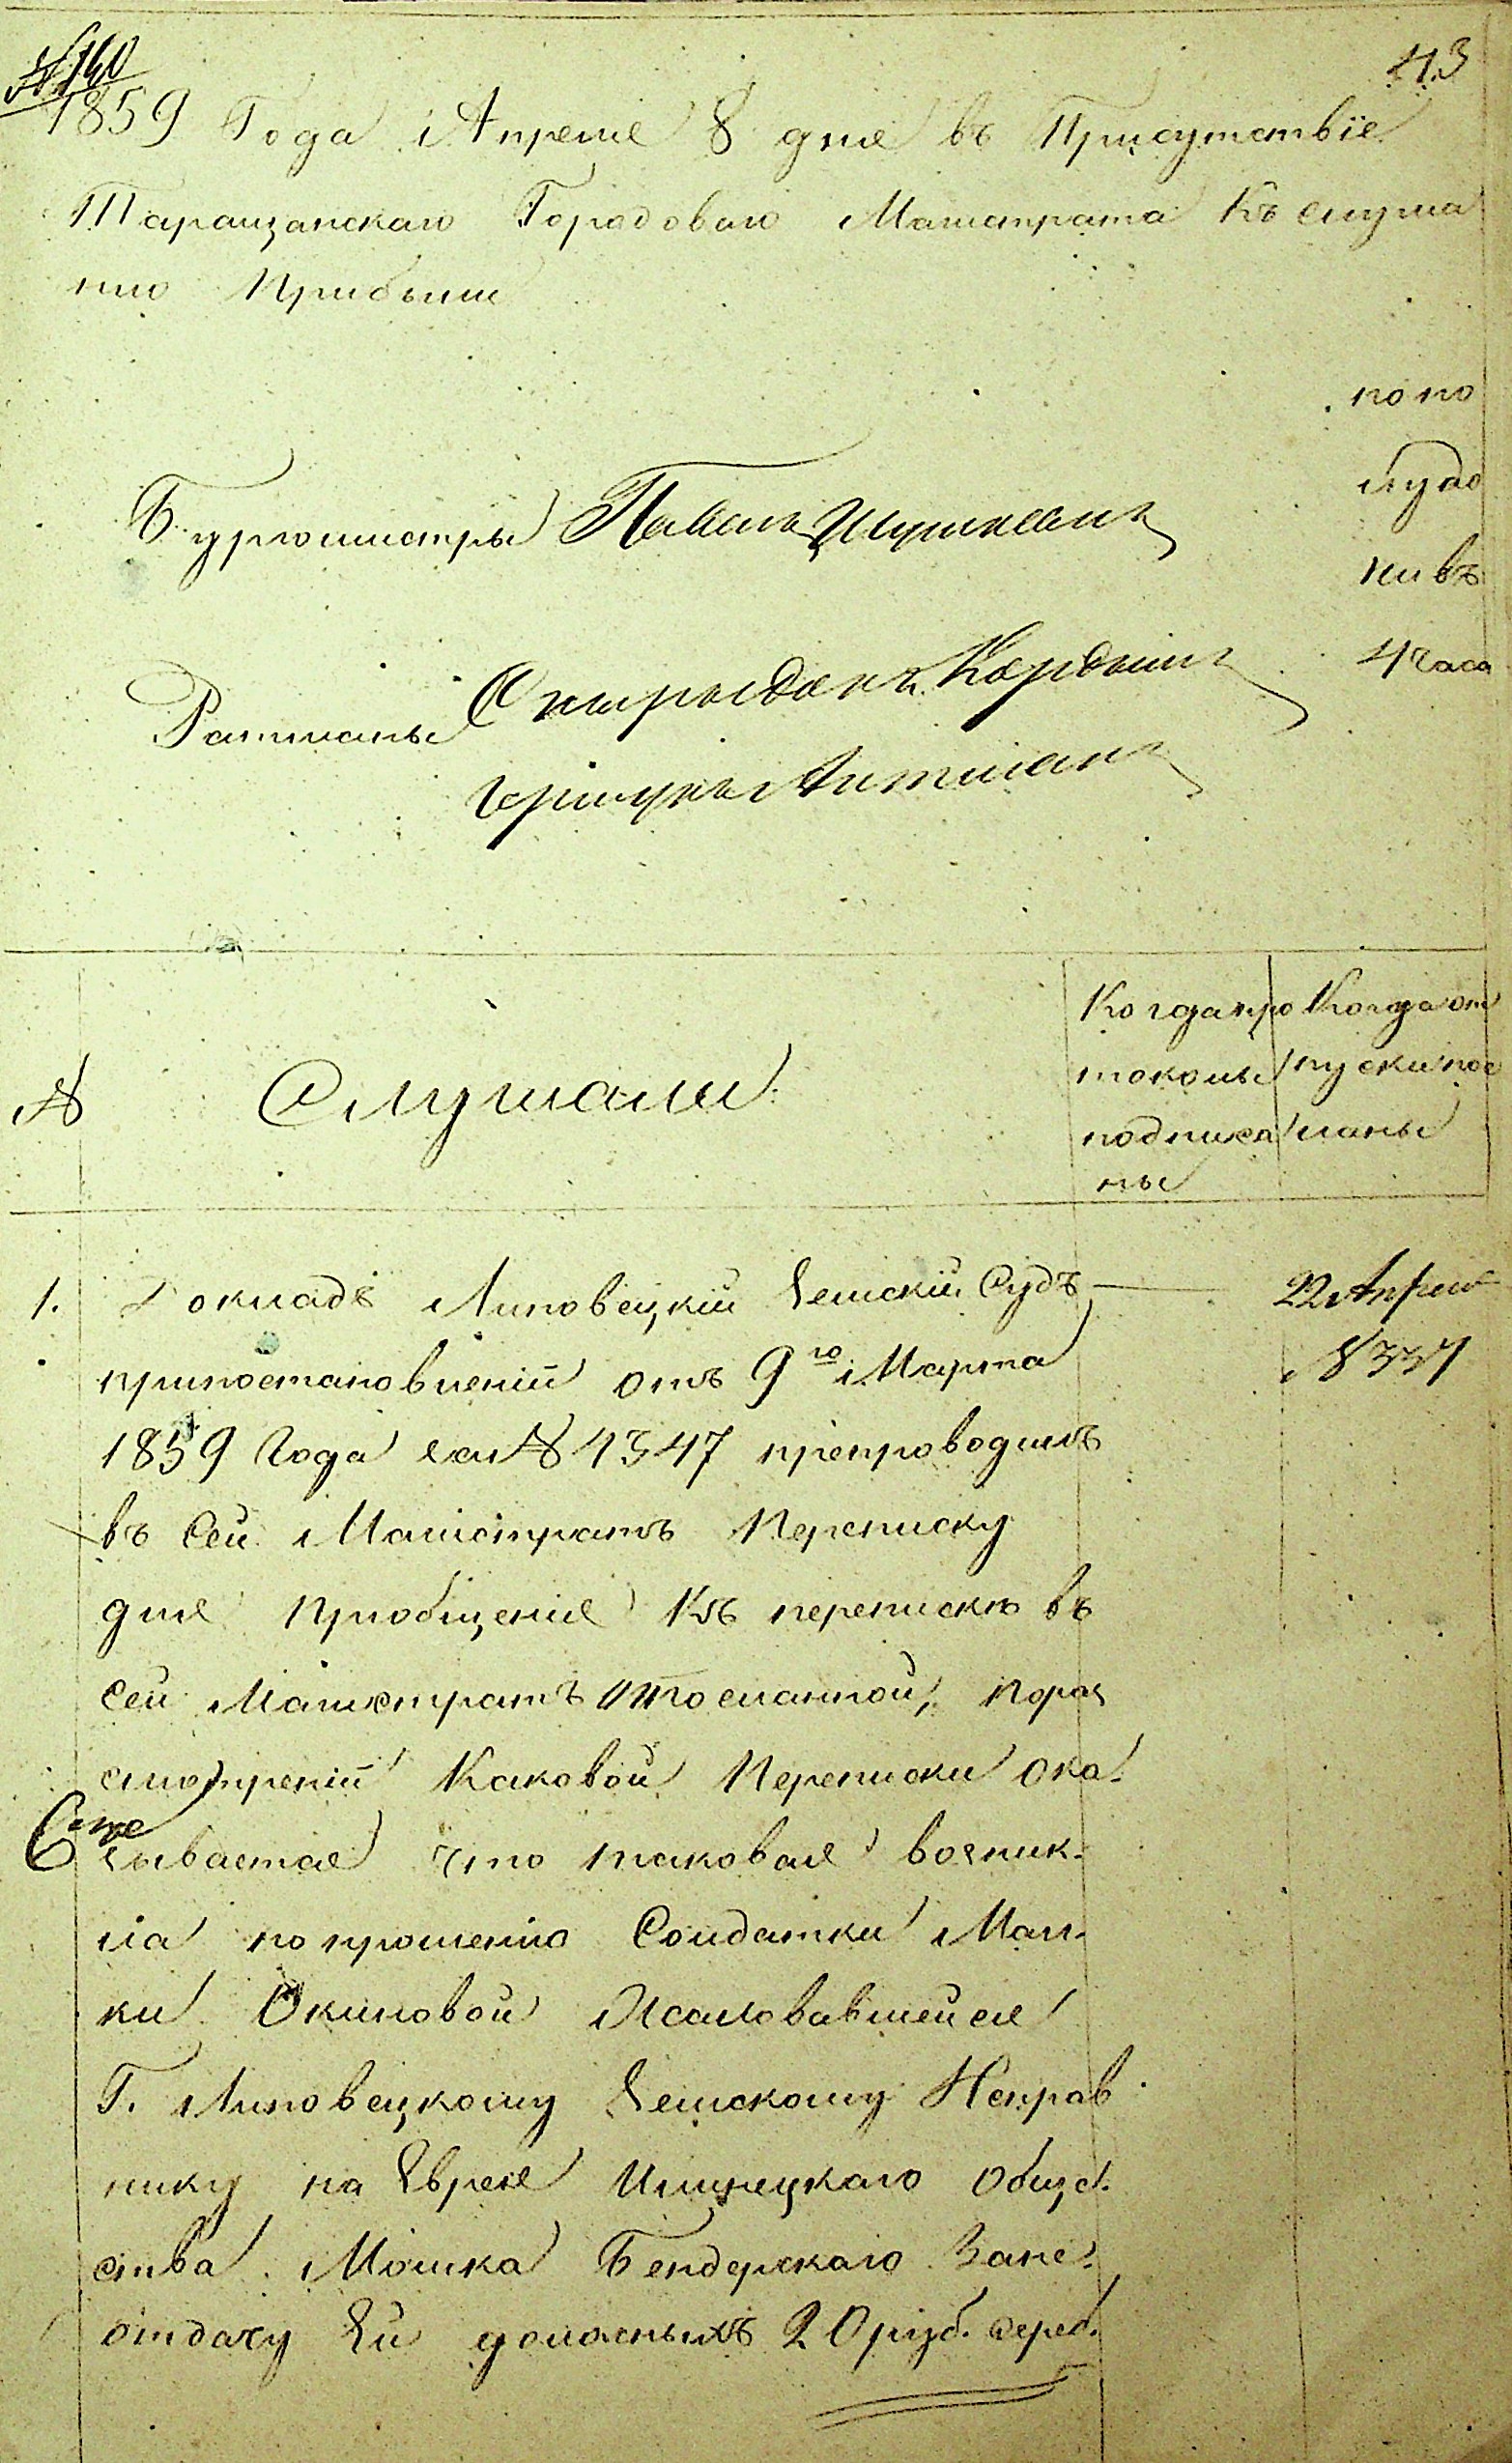 № 140
43
1859 Года Апреля 8 дня въ Присутствіе
Таращанскаго Городоваго Магистрата къ слуша
нию Прибыли
по по
луд
ни въ
4 часа
Бургомистры Павелъ
Ратманы
№
Слушали
Когда про
токолы
подписа
ны
Когда от
пуски пос
ланы
1. Докладъ Липовецкій Земскій Судъ
припостановленіи отъ 9го Марта
1859 Года за № 4347 препроводилъ
въ Сей Магистратъ Переписку
для Приобщенія Къ перепискѣ въ
сей Магистратъ отосланной, порас
смотреніи Каковой Переписки ока
зывается что таковая возник-
ла по прошенію Солдатки Мал-
ки Окиловой Жаловавшейся
Г. Липовецкому Земскому Исправ
нику на Еврея Илинецкаго Общест-
ства Мошка Бендерскаго Зане-
отдачу Ей должныхъ 20 руб. сереб.
22 Апреля
№ 337